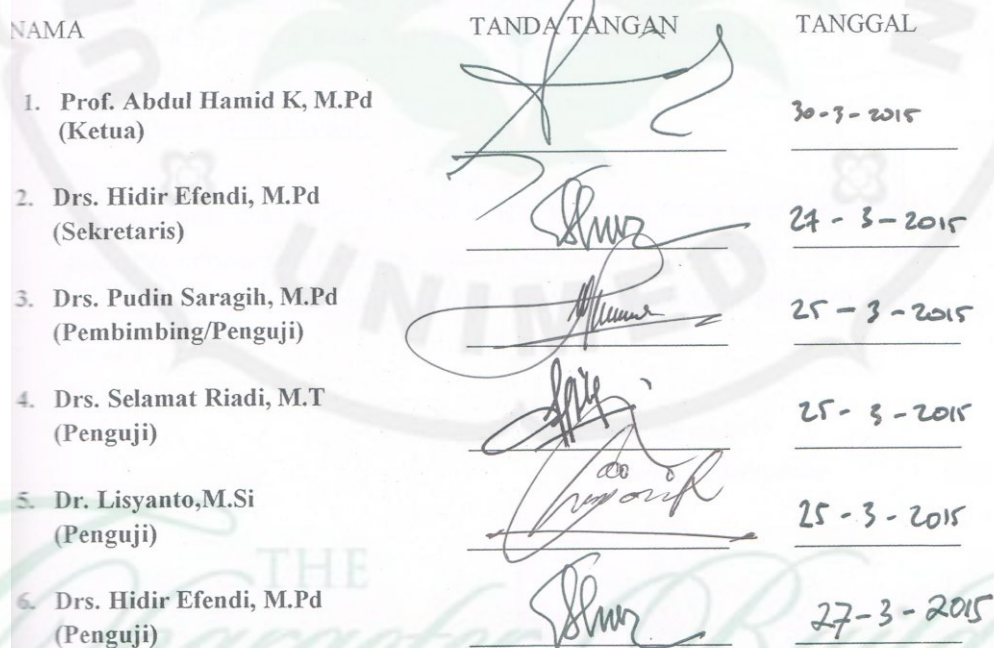 NAMA TANDA TANGAN TANGGAL
1. Prof. Abdul Hamid K, M.Pd
(Ketua) 30-3-2015
2. Drs. Hidir Efendi, M.Pd
(Sekretaris) 27-3-2015
3. Drs. Pudin Saragih, M.Pd
(Pembimbing/Penguji) 25-3-2015
4. Drs. Selamat Riadi, M.T
(Penguji) 25-3-2015
5. Dr. Lisyanto,M.Si
(Penguji) 25-3-2015
6. Drs. Hidir Efendi, M.Pd
(Penguji) 27-3-2015
UNIMED
THE